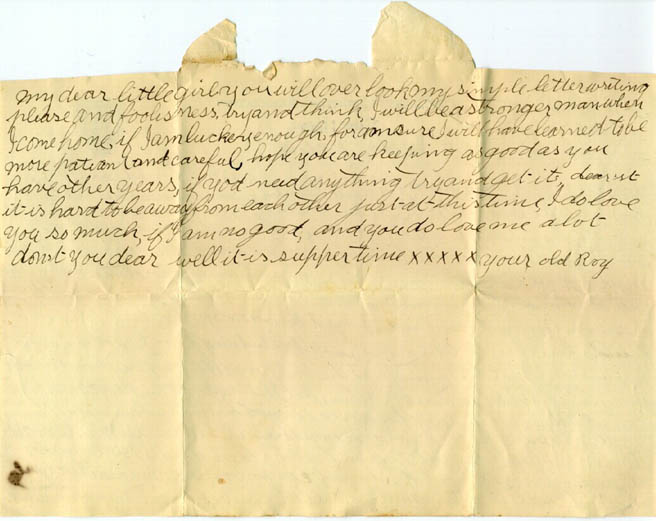 my dear little girly you will over look my simple letter writing
please and foolisness, try and think, I will be a stronger man when
I come home, if I am luckey enough, for am sure I will have learned to be
more patiant and careful, hope you are keeping as good as you
have other years, if you need anything try and get it,
it is hard to be away from each other just at this time, I do love
you so much, if I am no good, and you do love me a lot
dont you dear well it is supper time xxxxx your old Roy